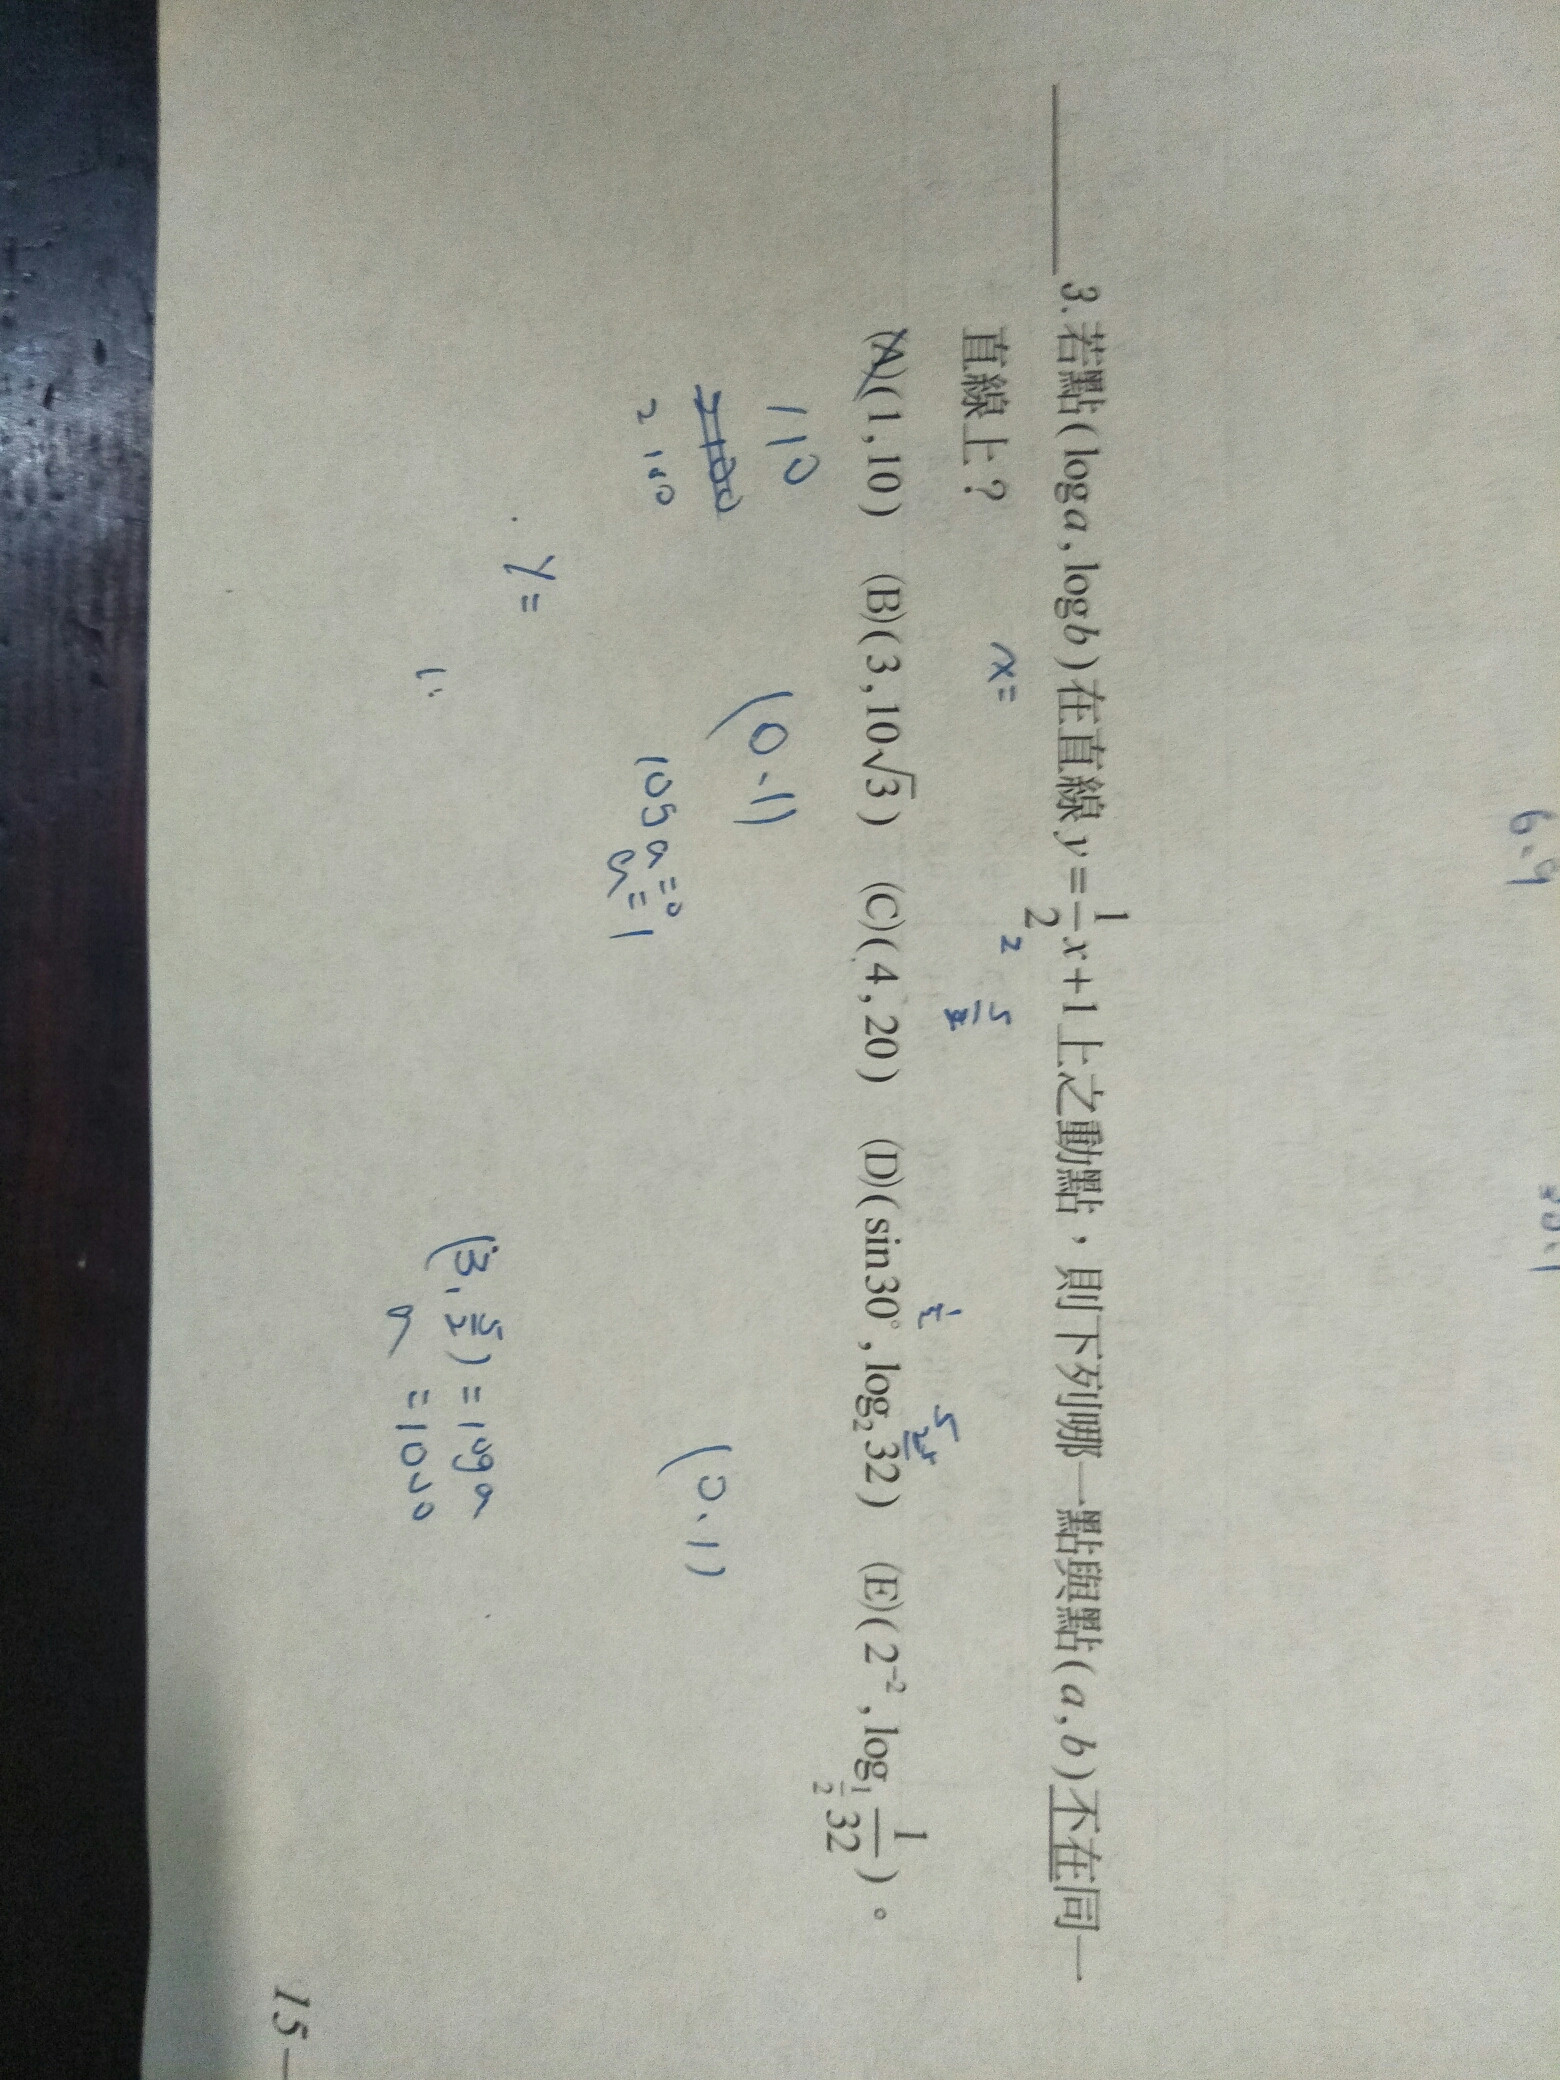 6.9
3.若點(log a , log b)在直線 y = 1/2 x + 1 上之動點，則下列哪一點與點(a , b)不在同一
直線上？
x=
2
5
(A)(1 , 10) (B)(3 , 10√3) (C)(4 , 20) (D)(sin30° , log₂32) (E)(2⁻² , log_{1/2} 1/32)。
1 10
2 100
(0.1)
log a = 0
a = 1
(0.1)
y =
(3, 5/2) = log a
a = 1000
15 —